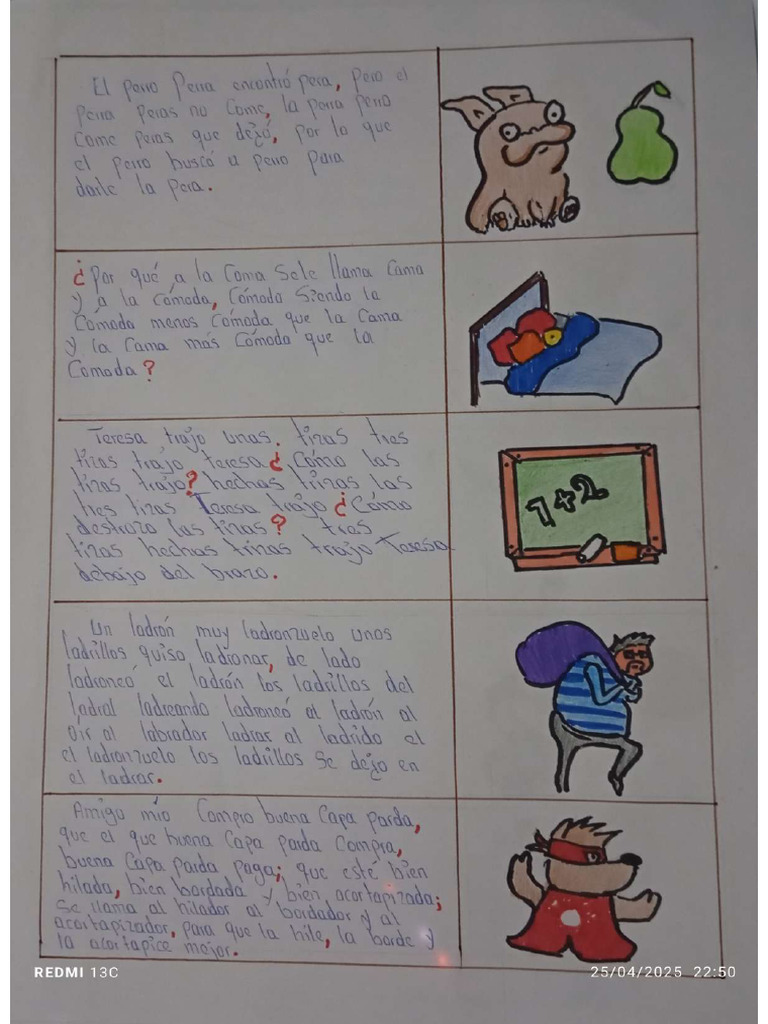 El perro Perra encontró pera, pero el
perra peras no come, la perra perro
come peras que dejó, por lo que
el perro buscó a perro para
darle la pera.
¿Por qué a la Coma Se le llama Cama
y a la cómoda, Cómoda Siendo la
Cómoda menos Cómoda que la Cama
y la Cama más Cómoda que la
Comoda?
Teresa trajo unas. tizas tres
tizas trajo teresa ¿Cómo las
tizas trajo? hechas trizas las
tres tizas Teresa trajo ¿Cómo
destrozo las tizas? tres
tizas hechas trizas trajo Teresa
debajo del brazo.
Un ladrón muy ladronzuelo unos
ladrillos quiso ladronar, de lado
ladroneó el ladrón los ladrillos del
ladral ladreando ladroneó al ladrón al
óir al labrador ladrar al ladrido el
el ladronzuelo los ladrillos Se dejo en
el ladrar.
Amigo mío Compro buena Capa parda,
que el que buena Capa parda Compra,
buena Capa parda paga; que esté bien
hilada, bien bordada y bien acortapizada;
Se llama al hilador al bordador y al
acortapizador, para que la hile, la borde y
la acortapice mejor.
1+2
REDMI 13C
25/04/2025 22:50